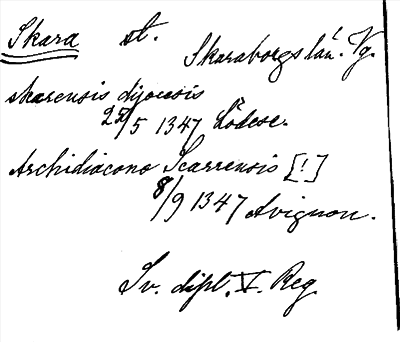 Skara st. Skaraborgs län. Vg.
skarensis dijocesis
25/5 1347 Lödese.
Archidiacono Scarrensis [!]
8/9 1347 Avignon.
Sv. dipl. V. Reg.